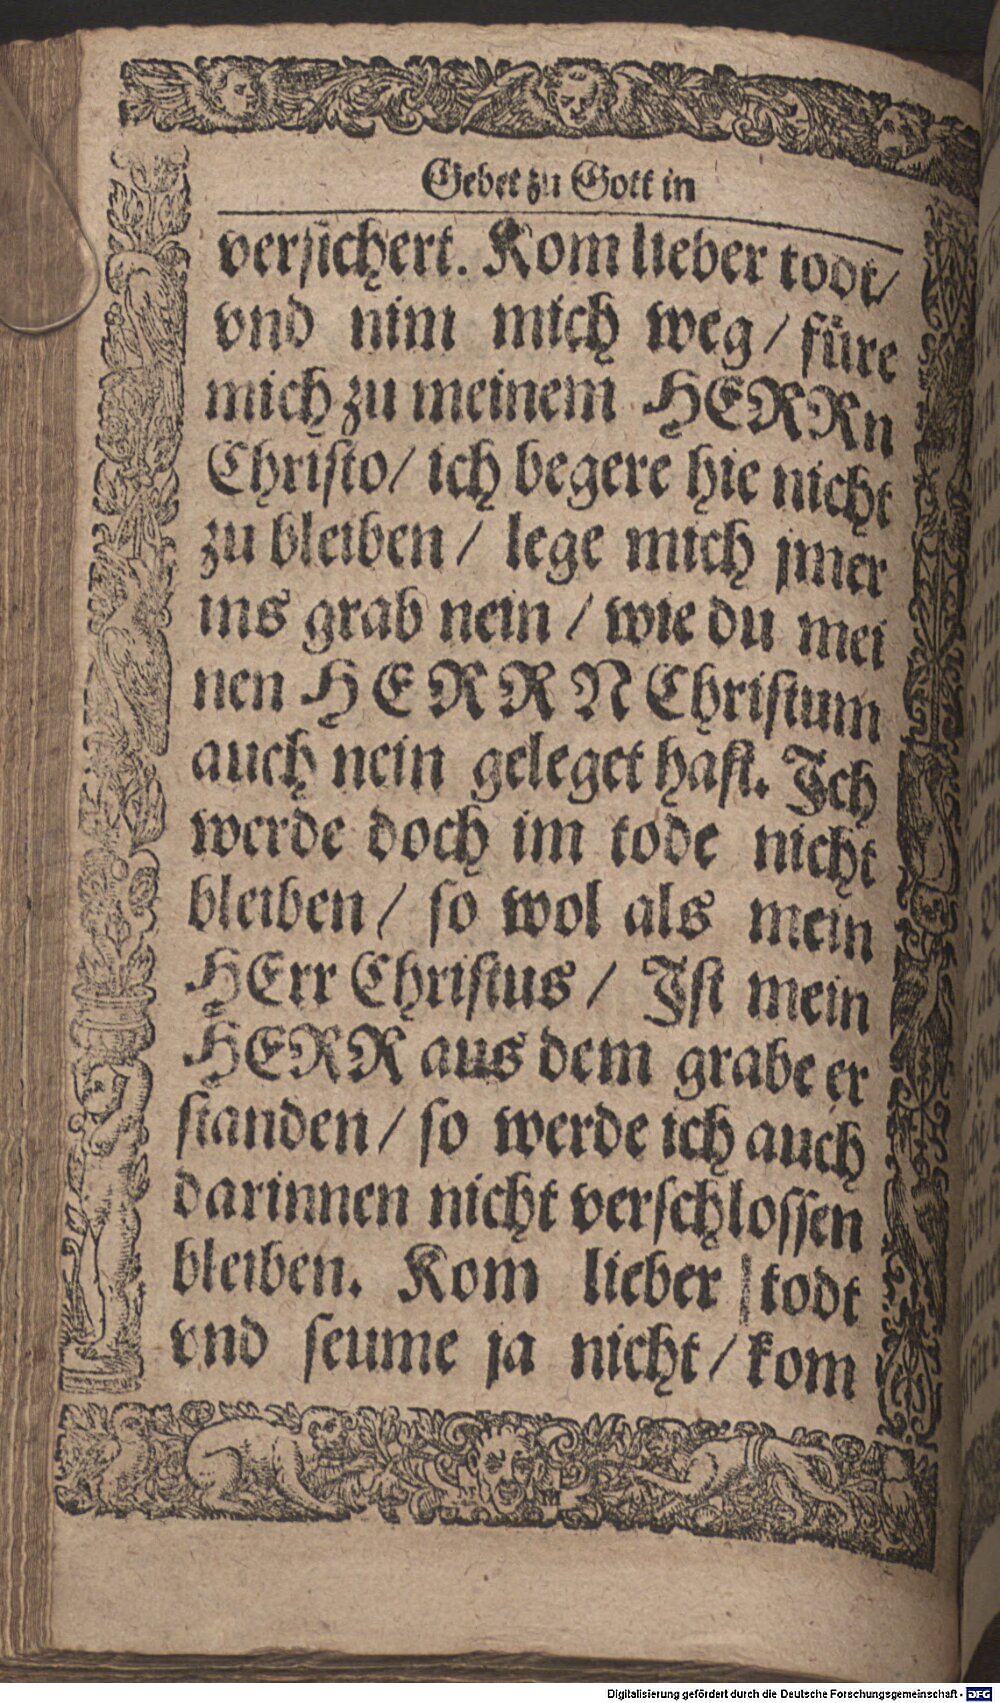 Gebet zu Gott in
versichert. Kom lieber todt/
vnd nim mich weg / füre
mich zu meinem HERRn
Christo/ ich begere hie nicht
zu bleiben / lege mich jmer
ins grab nein / wie du mei
nen HERRN Christum
auch nein geleget hast. Ich
werde doch im tode nicht
bleiben / so wol als mein
HErr Christus / Ist mein
HERR aus dem grabe er
standen / so werde ich auch
darinnen nicht verschlossen
bleiben. Kom lieber todt
vnd seume ja nicht / kom
Digitalisierung gefördert durch die Deutsche Forschungsgemeinschaft - DFG